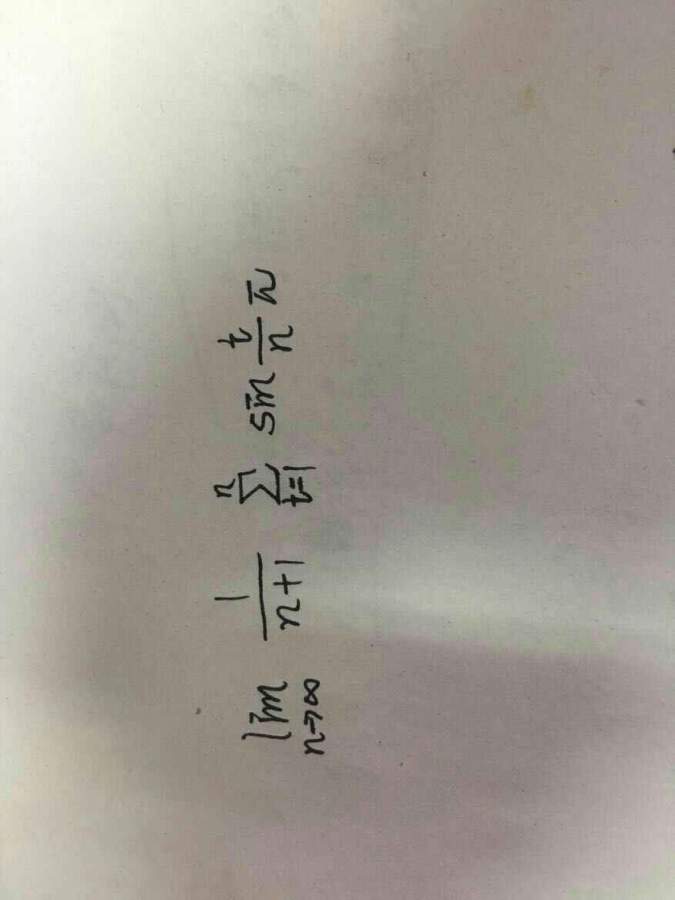 lim n→∞ 1/(n+1) ∑ t=1 n sin t/n π